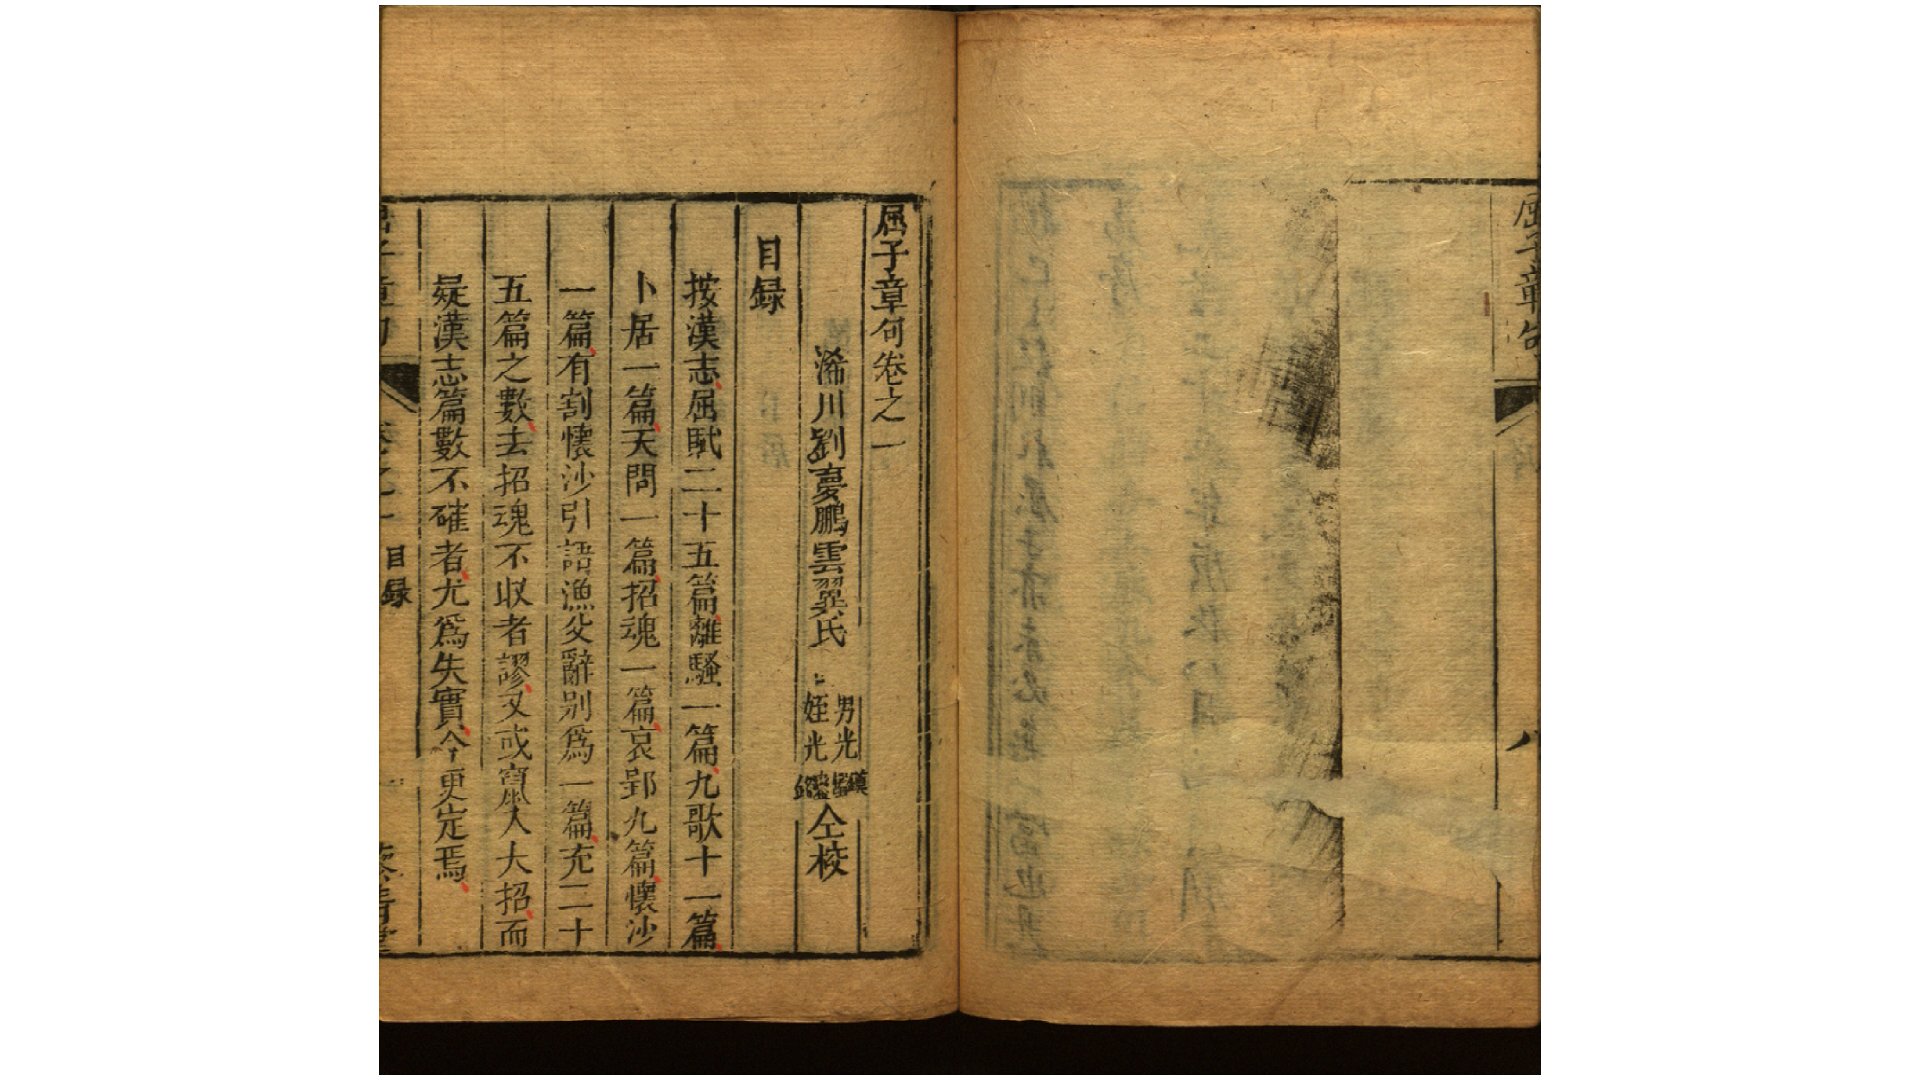 屈子章句
八
屈子章句卷之一
淅川劉夢鵬雲翼氏
男光
姪光
仝校
目録
按漢志屈賦二十五篇離騷一篇九歌十一篇
卜居一篇天問一篇招魂一篇哀郢九篇懷沙
一篇有割懷沙引語漁父辭别爲一篇充二十
五篇之數去招魂不收者謬又或竄入大招而
疑漢志篇數不確者尤爲失實今更定焉
屈子章句
卷之一
目録
一
藜青堂